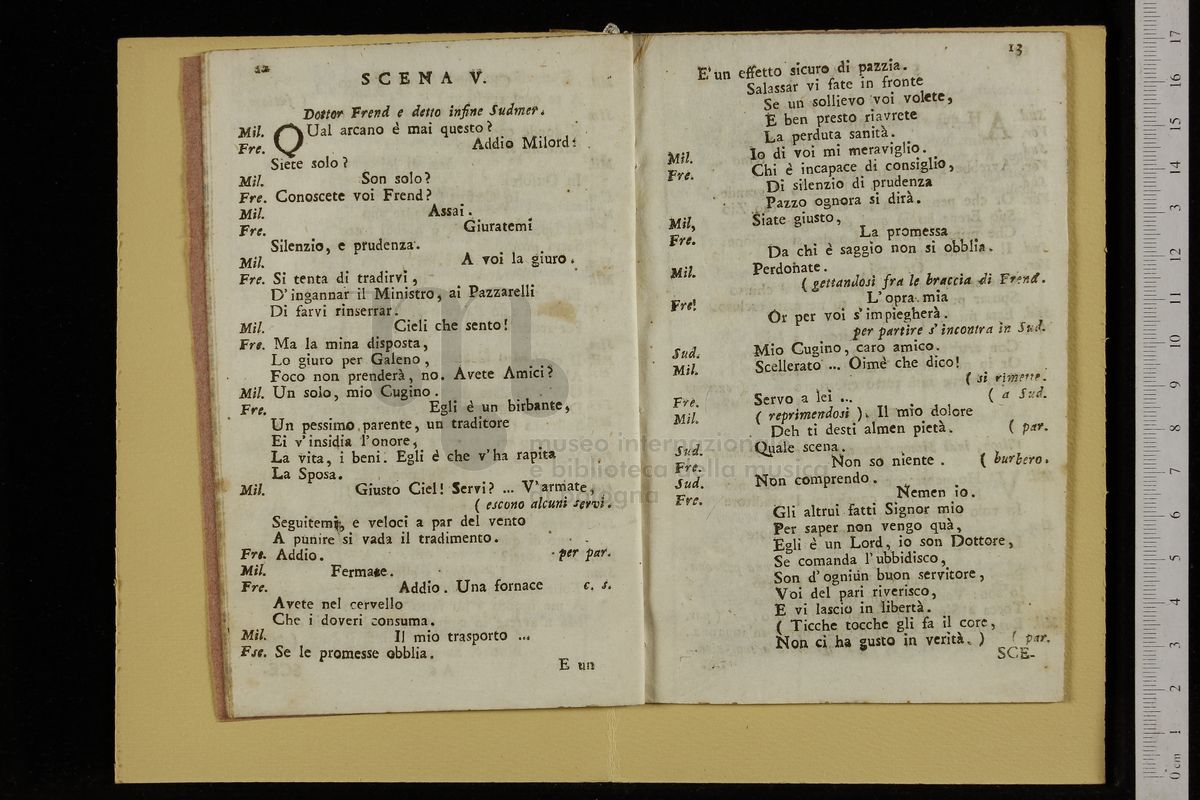 12
SCENA V.
Dottor Frend e detto infine Sudmer.
Mil. QUal arcano è mai questo?
Fre. Addio Milord:
Siete solo?
Mil. Son solo?
Fre. Conoscete voi Frend?
Mil. Assai.
Fre. Giuratemi
Silenzio, e prudenza.
Mil. A voi la giuro.
Fre. Si tenta di tradirvi,
D'ingannar il Ministro, ai Pazzarelli
Di farvi rinserrar.
Mil. Cieli che sento!
Fre. Ma la mina disposta,
Lo giuro per Galeno,
Foco non prenderà, no. Avete Amici?
Mil. Un solo, mio Cugino.
Fre. Egli è un birbante,
Un pessimo parente, un traditore
Ei v'insidia l'onore,
La vita, i beni. Egli è che v'ha rapita
La Sposa.
Mil. Giusto Ciel! Servi? ... V'armate,
( escono alcuni servi.
Seguitemi, e veloci a par del vento
A punire si vada il tradimento.
Fre. Addio. per par.
Mil. Fermate.
Fre. Addio. Una fornace c. s.
Avete nel cervello
Che i doveri consuma.
Mil. Il mio trasporto ...
Fse. Se le promesse obblia.
E un
13
E' un effetto sicuro di pazzia.
Salassar vi fate in fronte
Se un sollievo voi volete,
E ben presto riavrete
La perduta sanità.
Mil. Io di voi mi meraviglio.
Fre. Chi è incapace di consiglio,
Di silenzio di prudenza
Pazzo ognora si dirà.
Mil, Siate giusto,
Fre. La promessa
Da chi è saggio non si obblia.
Mil. Perdonate.
( gettandosi fra le braccia di Frend.
Fre! L'opra mia
Or per voi s'impiegherà.
per partire s'incontra in Sud.
Sud. Mio Cugino, caro amico.
Mil. Scellerato ... Oimè che dico!
( si rimette.
Fre. Servo a lei ... ( a Sud.
Mil. ( reprimendosi ). Il mio dolore
Deh ti desti almen pietà. ( par.
Sud. Quale scena.
Fre. Non so niente. ( burbero.
Sud. Non comprendo.
Fre. Nemen io.
Gli altrui fatti Signor mio
Per saper non vengo quà,
Egli è un Lord, io son Dottore,
Se comanda l'ubbidisco,
Son d'ogniun buon servitore,
Voi del pari riverisco,
E vi lascio in libertà.
( Ticche tocche gli fa il core,
Non ci ha gusto in verità. ) ( par.
SCE-
museo internazionale
e biblioteca della musica
di bologna
17
16
15
14
13
12
11
10
9
8
7
6
5
4
3
2
1
0 cm